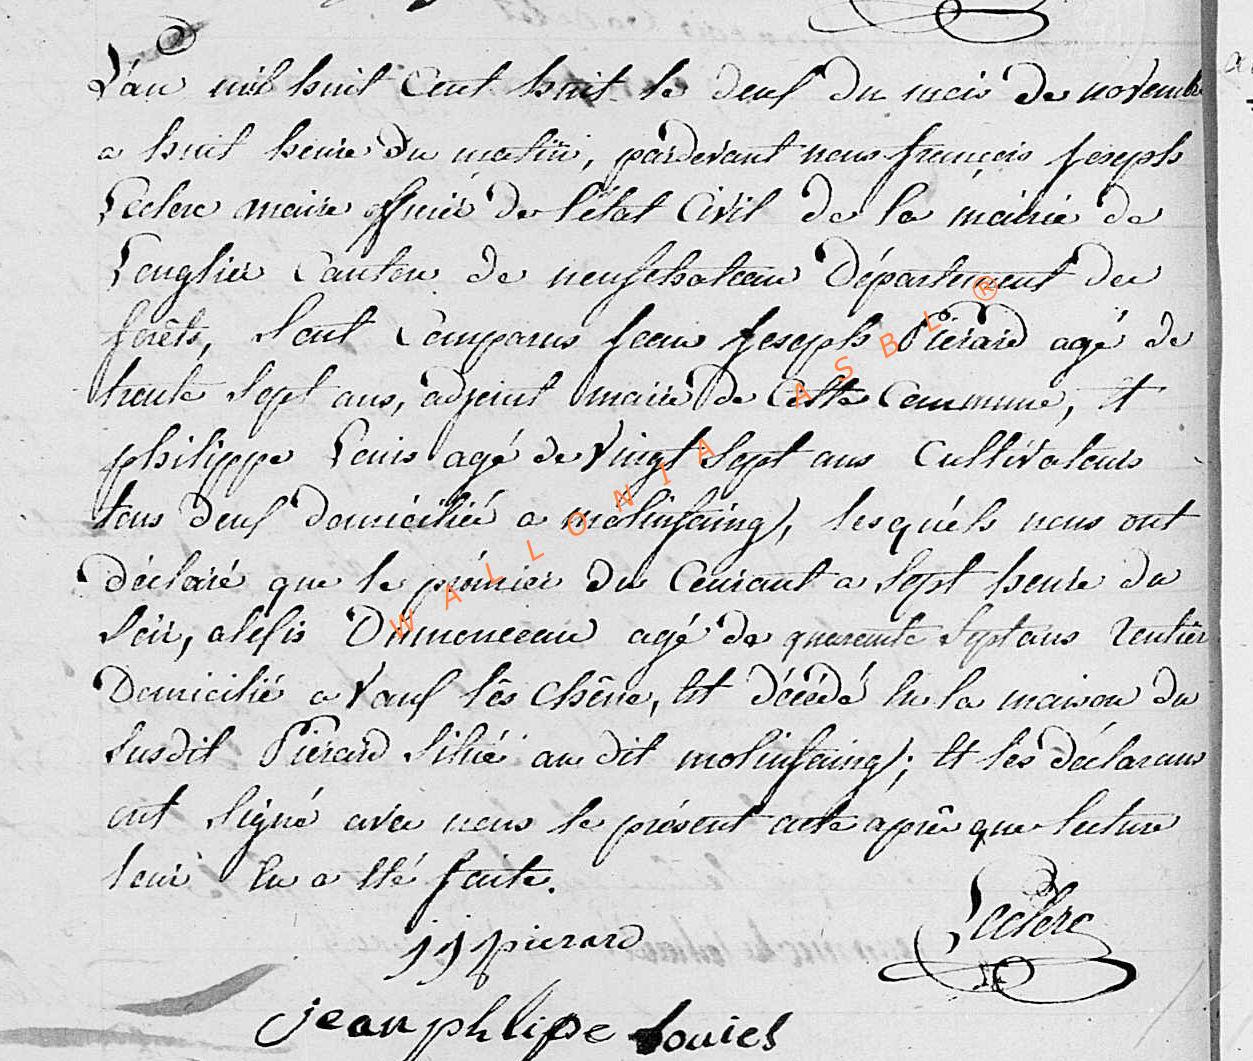 L'an mil huit Cent huit le deux du mois de novembre
a huit heure du matin, pardevant nous françois joseph
Leclerc maire officier de l'état Civil de la mairie de
Longlier Canton de neufchateau Département des
forêts, Sont Comparus jean joseph Piérard agé de
trente Sept ans, adjoint maire de Cette Commune, Et
philippe Louis agé de Vingt Sept ans Cultivateurs
tous deux domiciliée a molinfaing, lesquéls nous ont
déclaré que le prémier du Courant a Sept heure du
Soir, aléxis Dumonceau agé de quarante Sept ans rentier
Domicilié a Vaux lês Chêne, Est décédé En la maison du
Susdit Piérard Sitúé au dit molinfaing; Et les déclarans
ont Signé avec nous le présent acte áprês que lecture
leur En a Eté faite.
Leclerc
jjpierard
jean phlipe Louies
WALLONIA ASBL ®